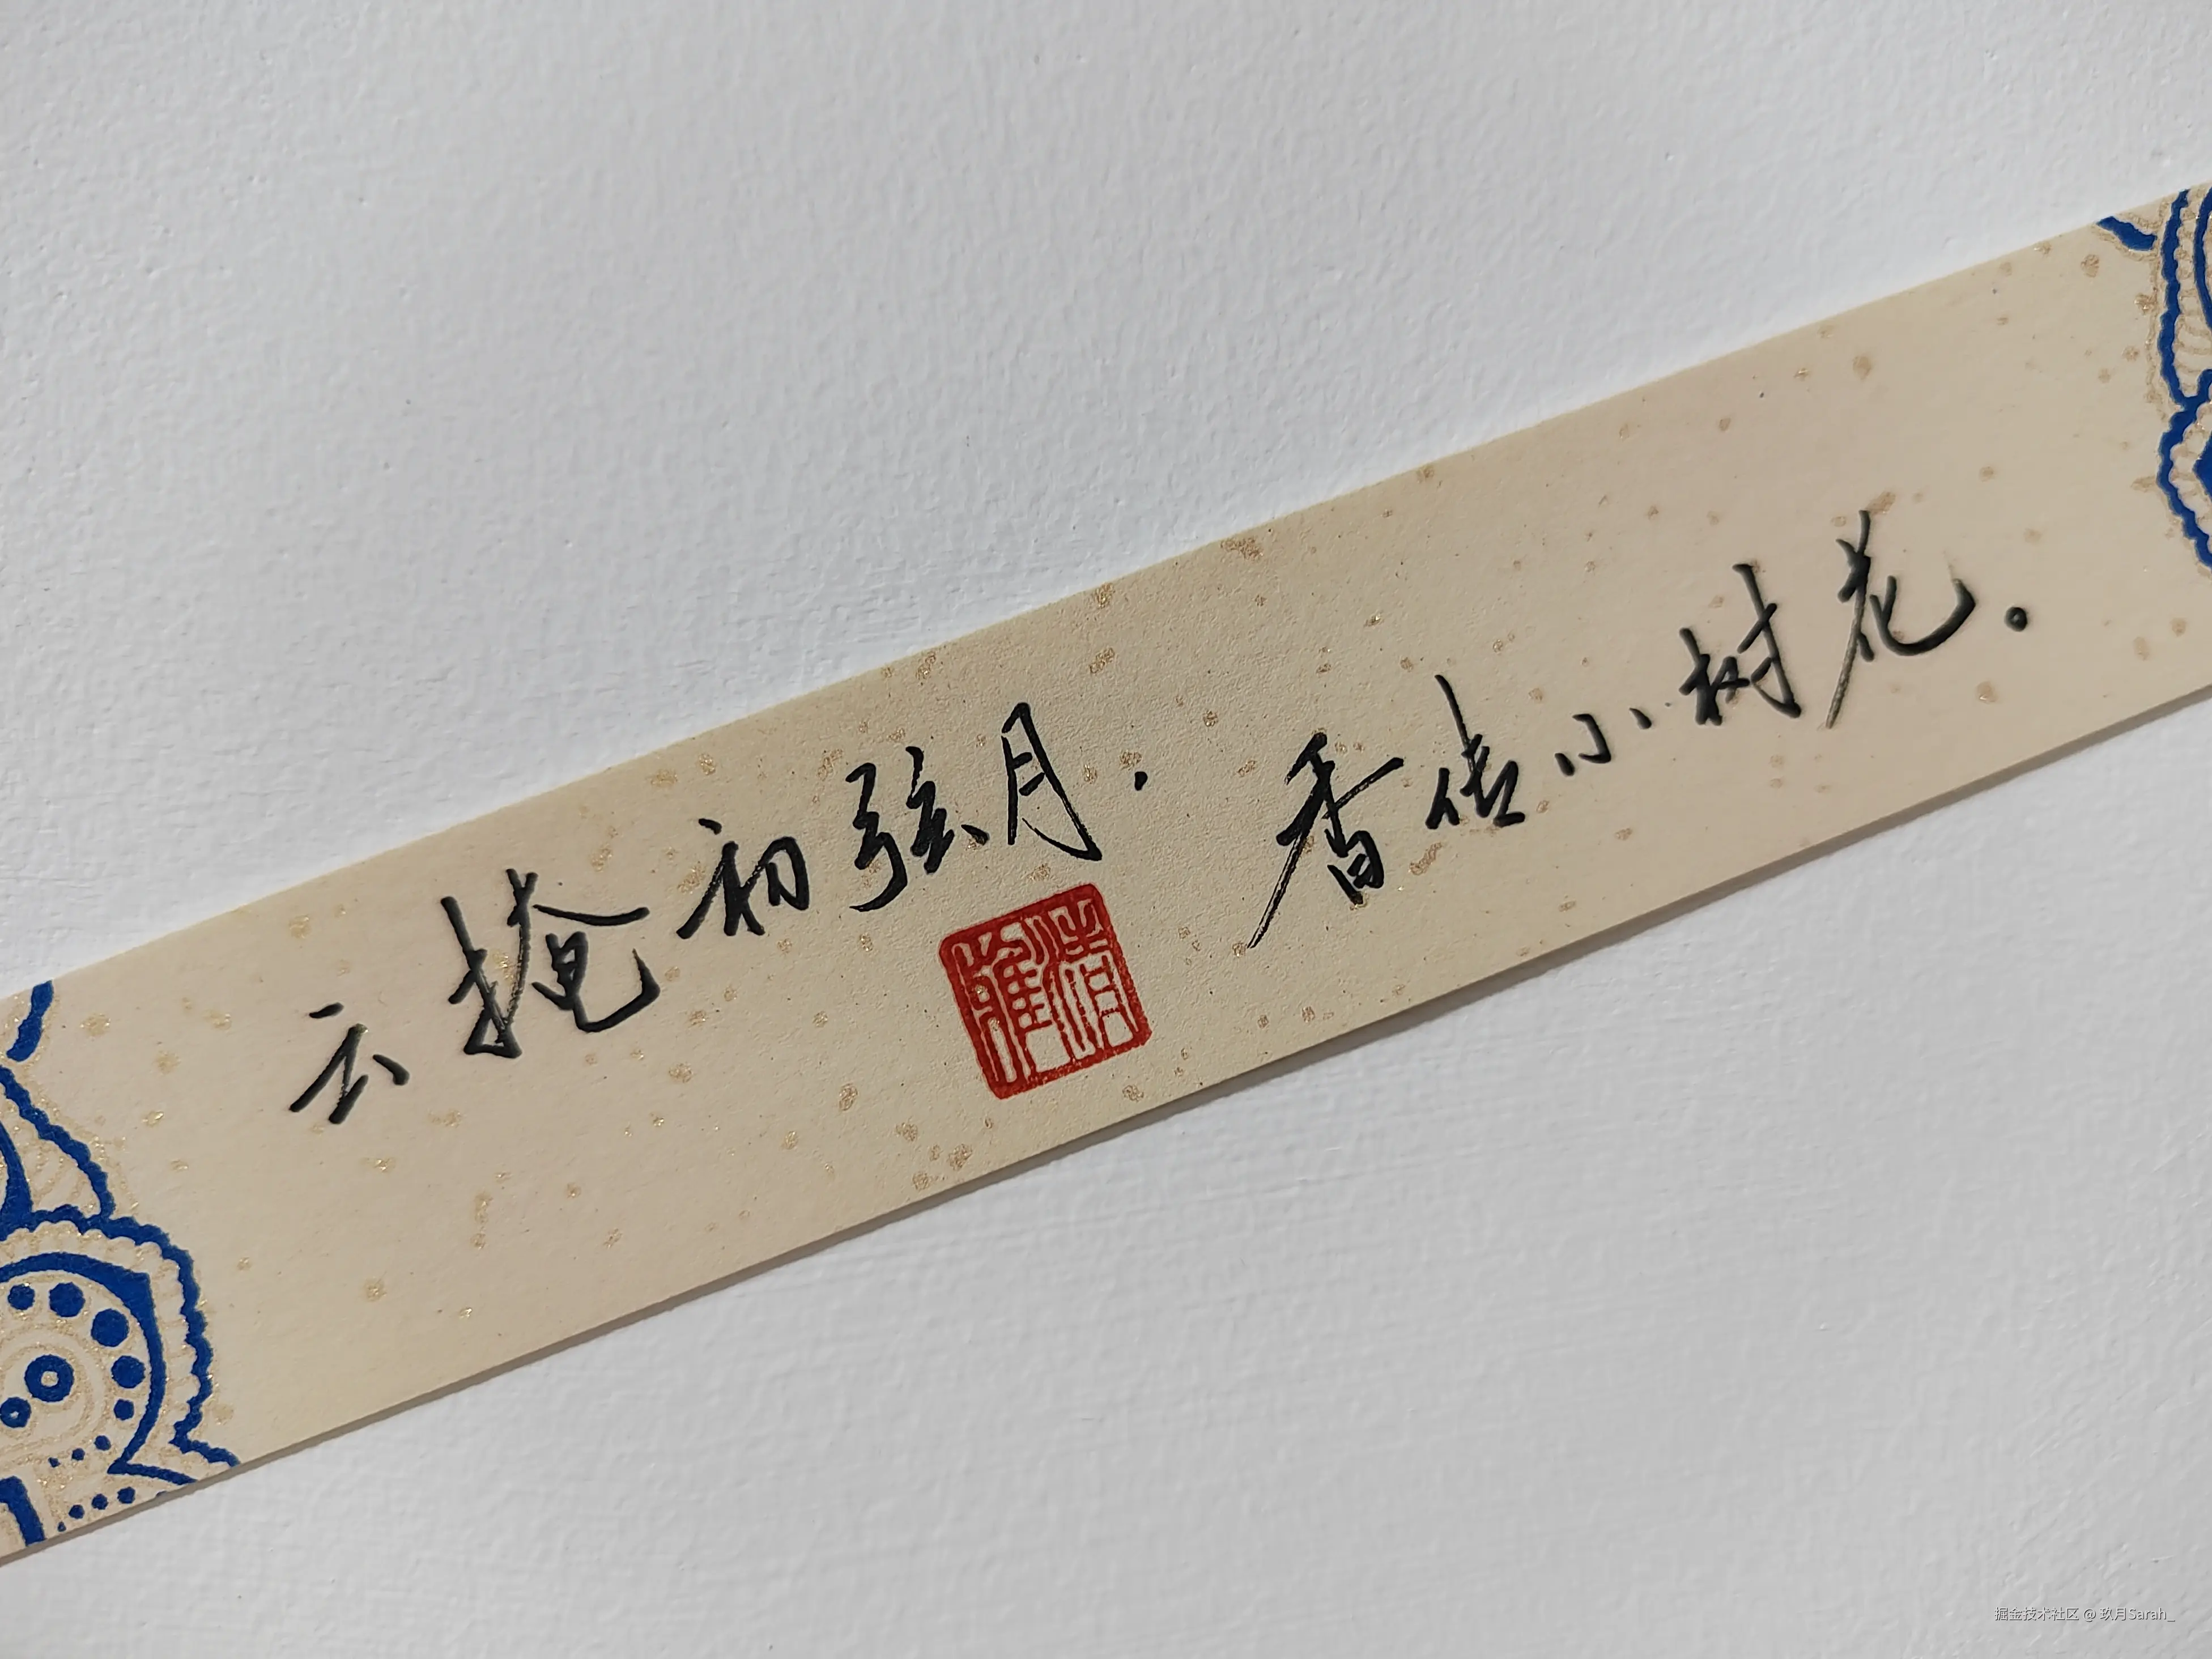 云掩初弦月，香传小树花。
清雅
掘金技术社区 @ 玖月Sarah_